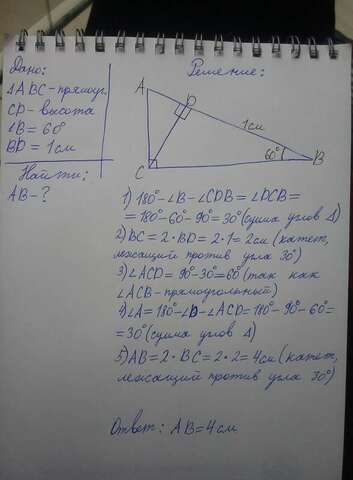 Дано:
ΔABC-прямоуг.
CD-высота
∠B = 60°
BD = 1см
Найти:
AB-?
Решение:
A
D
1см
60°
B
C
1) 180°-∠B-∠CDB=∠DCB=
=180°-60°-90°=30°(сумма углов Δ)
2) BC=2·BD=2·1=2см (катет,
лежащий против угла 30°)
3) ∠ACD=90°-30°=60°(так как
∠ACB-прямоугольный)
4) ∠A=180°-∠D-∠ACD=180°-90°-60°=
=30°(сумма углов Δ)
5) AB=2·BC=2·2=4см (катет,
лежащий против угла 30°)
Ответ: AB=4см